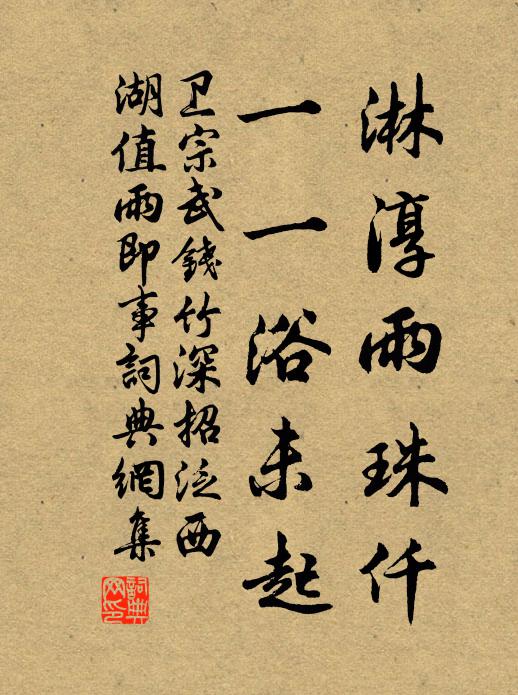 淋淳雨珠仟
一一浴未起
卫宗武錢竹深招泛西
湖值雨即事詞典網集
詞典网印